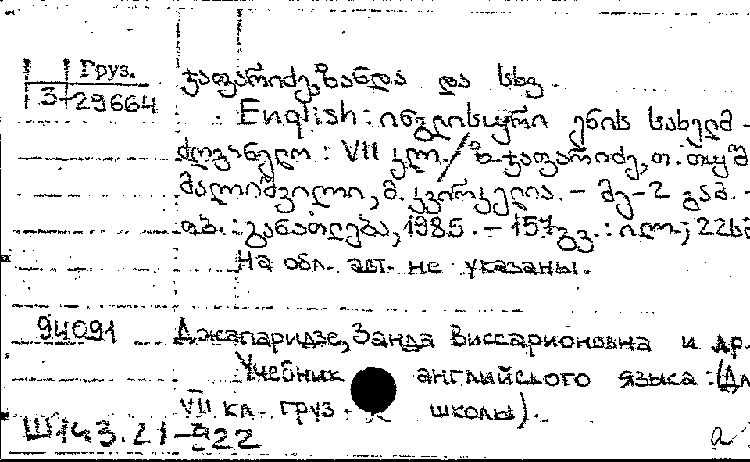 Груз.
3-29664
ჯაფარიძე, ზანდა და სხვ.
English: ინგლისური ენის სახელმ-
ძღვანელო: VII კლ. / ზ. ჯაფარიძე, თ. თყეშ
მალიშვილი, მ. კვირკველია. - მე-2 გამ. -
თბ.: განათლება, 1985. - 157 გვ.: ილ.; 22სმ
На обл. авт. не указаны.
94091 Джапаридзе, Занда Виссарионовна и др.
Учебник английского языка: (Дл
VII кл. груз. школы).
Ш143.21-922